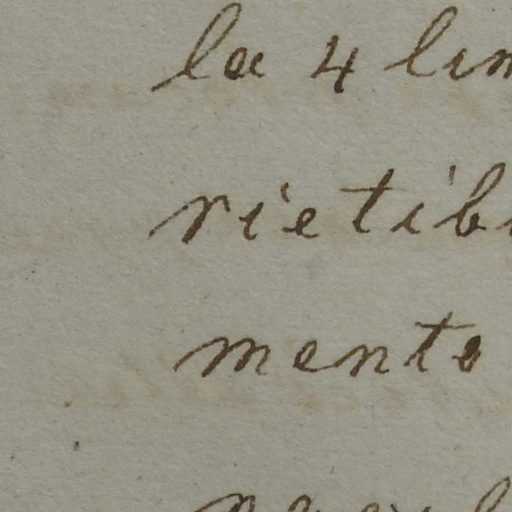 la 4 lim
rietib
mento